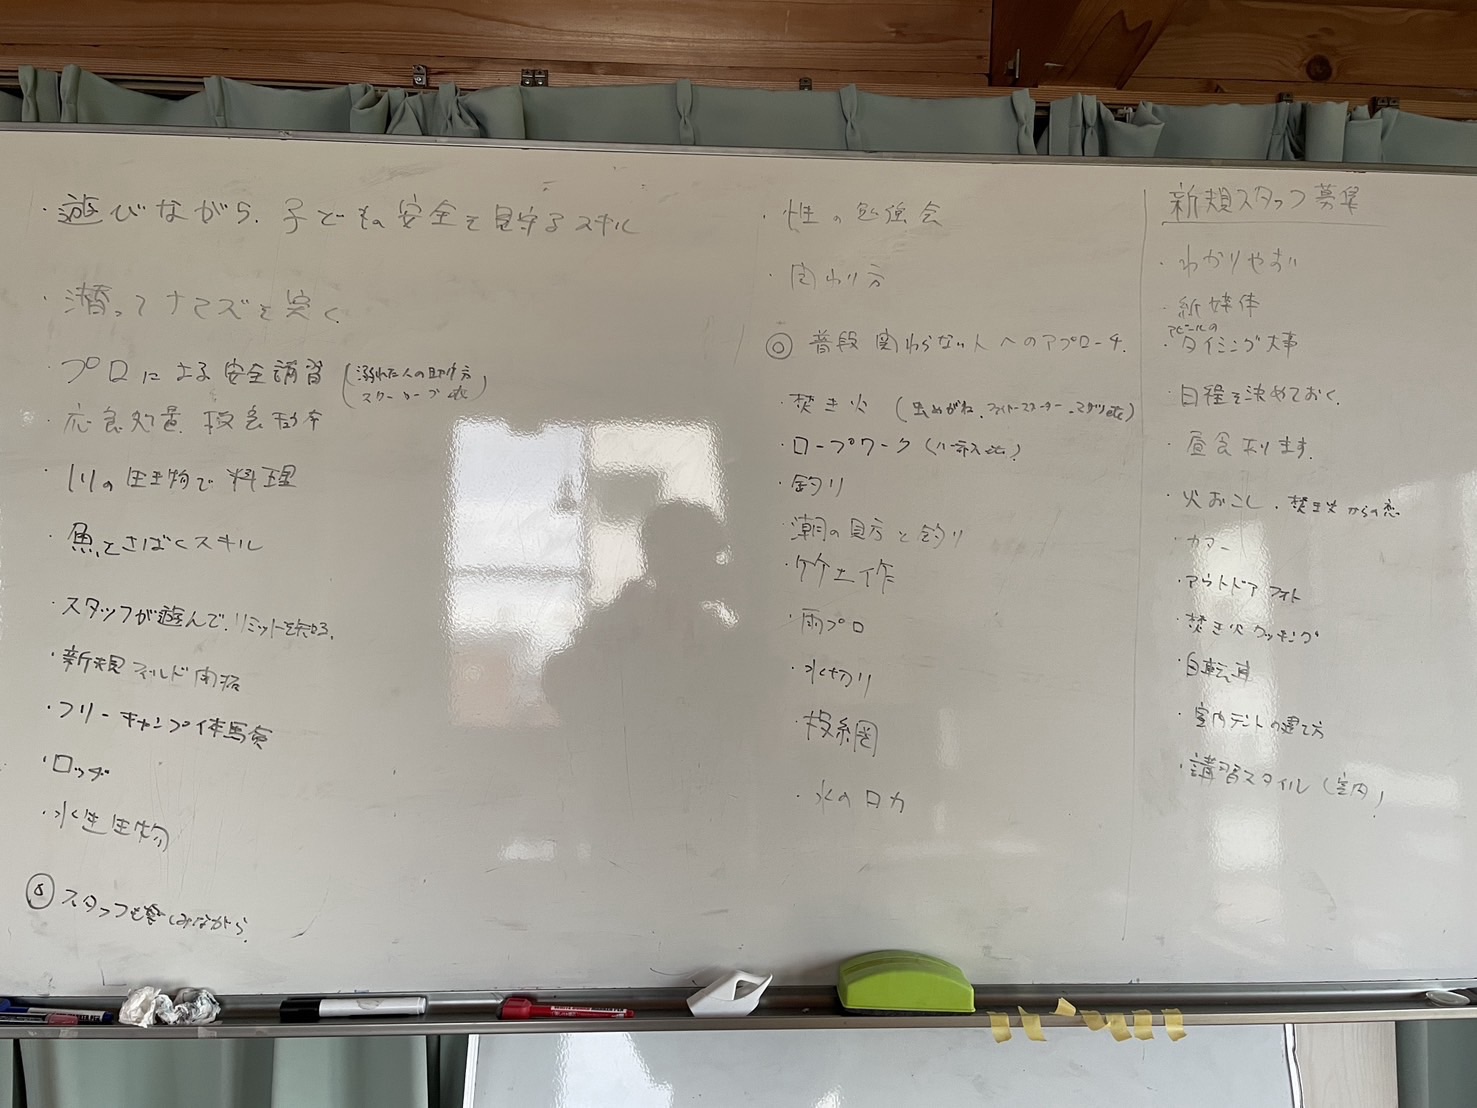 ・遊びながら、子どもの安全を見守るスキル
・潜ってナマズを突く
・プロによる安全講習 (溺れた人の助け方
スローロープ etc)
・応急処置、救急
・川の生き物で料理
・魚をさばくスキル
・スタッフが遊んで、リミットを知る。
・新規フィールド開拓
・フリーキャンプ体験
・ロッヂ
・水生生物
◎ スタッフも楽しみながら。
・性の勉強会
・関わり方
◎ 普段関わらない人へのアプローチ。
・焚き火 (虫めがね、ファイヤースターター、マグソ etc)
・ロープワーク (ハーネス etc)
・釣り
・潮の見方と釣り
・竹工作
・雨プロ
・水切り
・投網
・水の口力
新規スタッフ募集
・わかりやすい
・紙媒体
アピールの
・タイミング大事
・日程を決めておく。
・昼食あります。
・火おこし、焚き火からの恋
・カヌー
・アウトドアフォト
・焚き火クッキング
・自転車
・室内テントの建て方
・講習スタイル (室内)